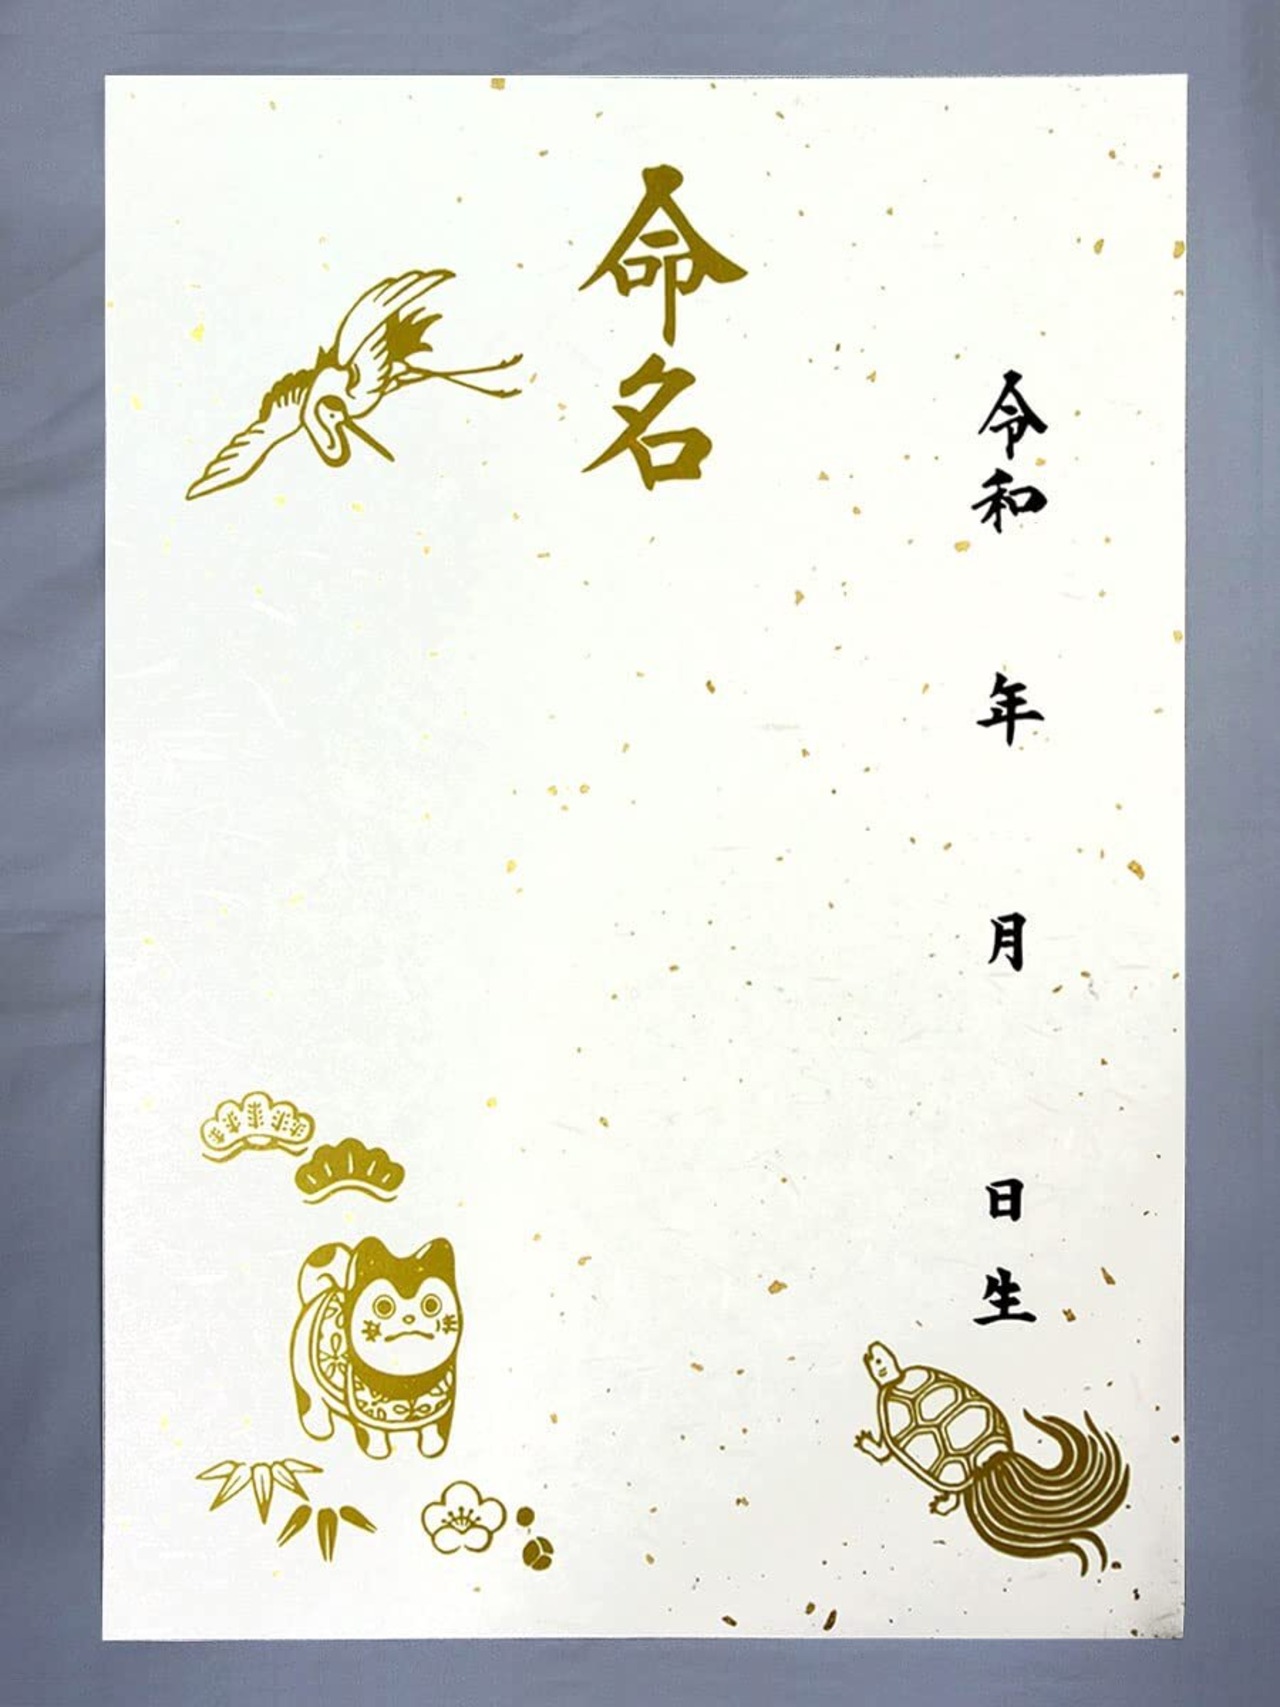 令和　年　月　日生
命名